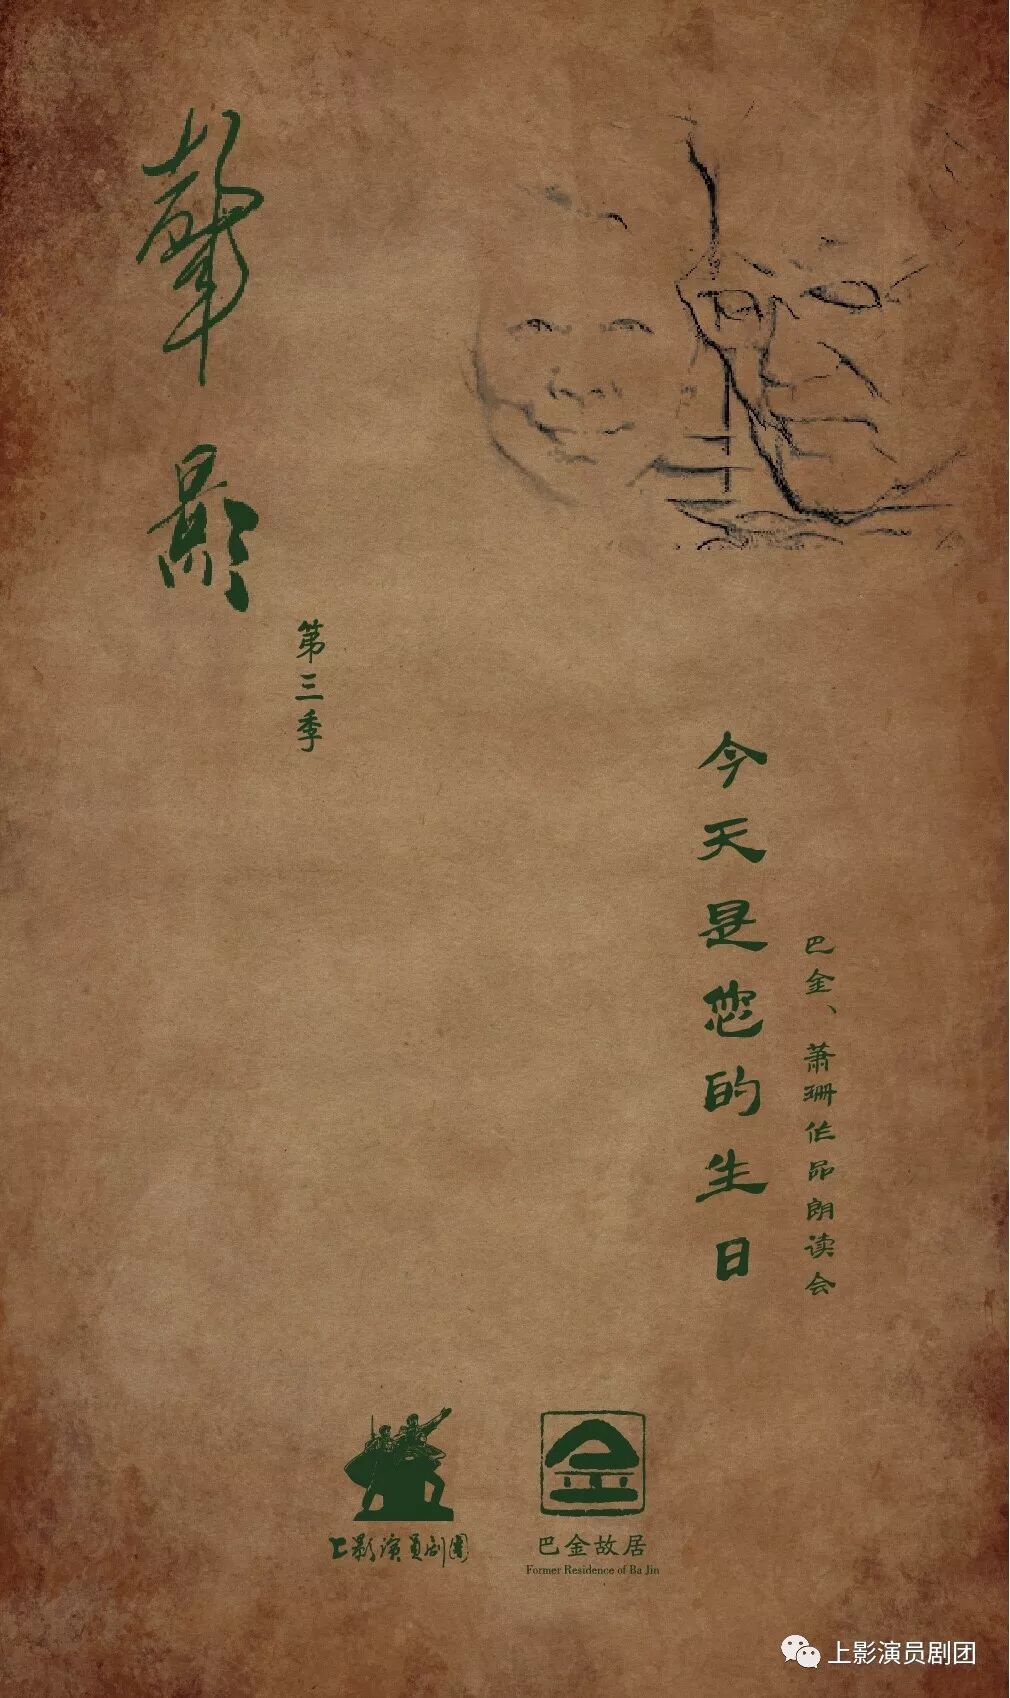 聲影
第三季
今天是您的生日
巴金、萧珊作品朗读会
上影演员剧团
巴金故居
Former Residence of Ba Jin
上影演员剧团